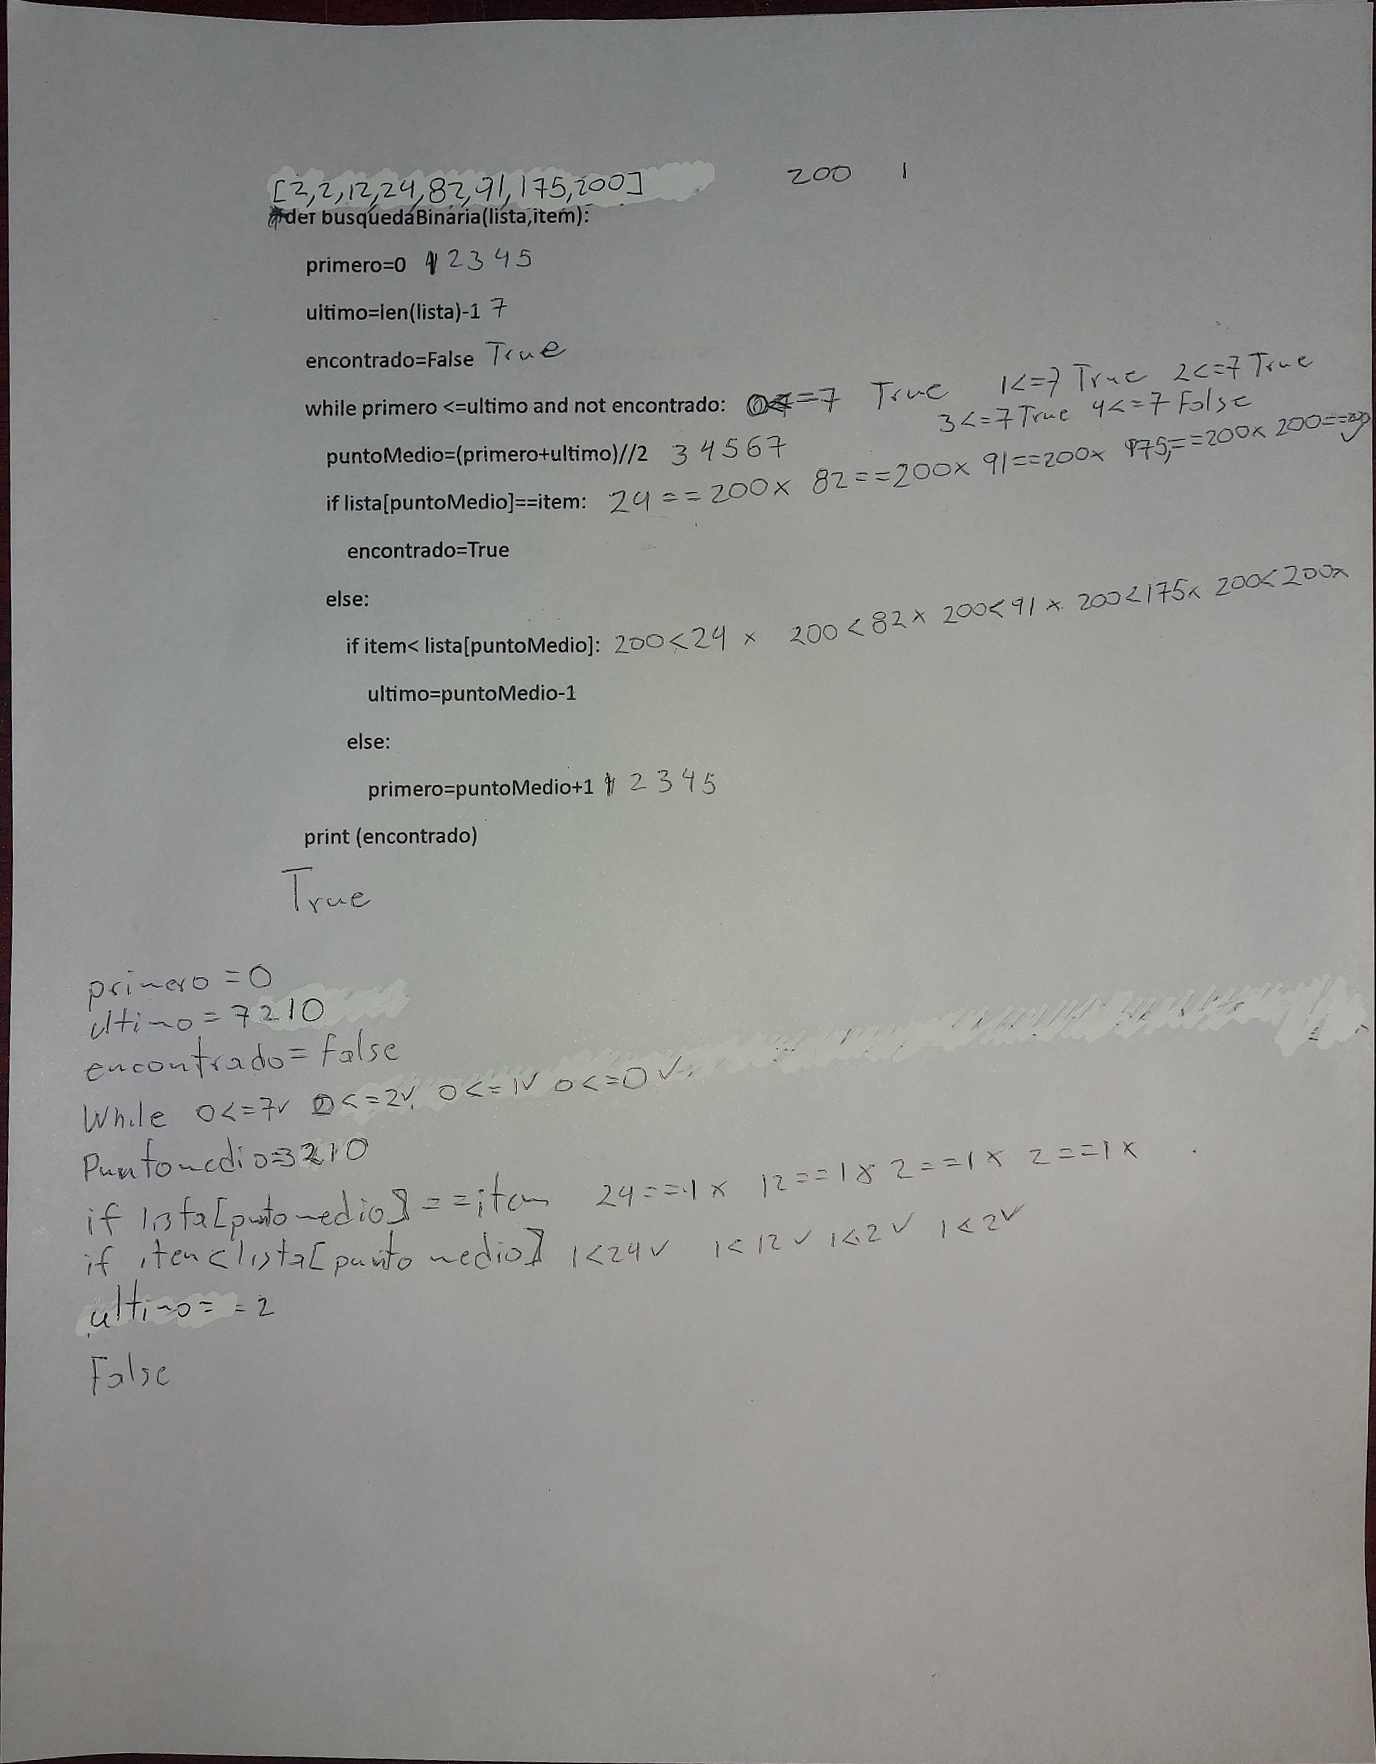 200 1
[2,2,12,24,82,91,175,200]
def busquedaBinaria(lista,item):
primero=0 1 2 3 4 5
ultimo=len(lista)-1 7
encontrado=False True
while primero <=ultimo and not encontrado: 0<=7 True 1<=7 True 2<=7 True
3<=7 True 4<=7 False
puntoMedio=(primero+ultimo)//2 3 4 5 6 7
if lista[puntoMedio]==item: 24==200x 82==200x 91==200x 175==200x 200==200
encontrado=True
else:
if item< lista[puntoMedio]: 200<24 x 200<82x 200<91x 200<175x 200<200x
ultimo=puntoMedio-1
else:
primero=puntoMedio+1 1 2 3 4 5
print (encontrado)
True
primero=0
ultimo=7210
encontrado=false
While 0<=7✓ 0<=2✓ 0<=1✓ 0<=0✓
Puntomedio=3210
if lista[puntomedio]==item 24==1x 12==1x 2==1x 2==1x
if item<lista[punto medio] 1<24✓ 1<12✓ 1<2✓ 1<2✓
ultimo= =2
False